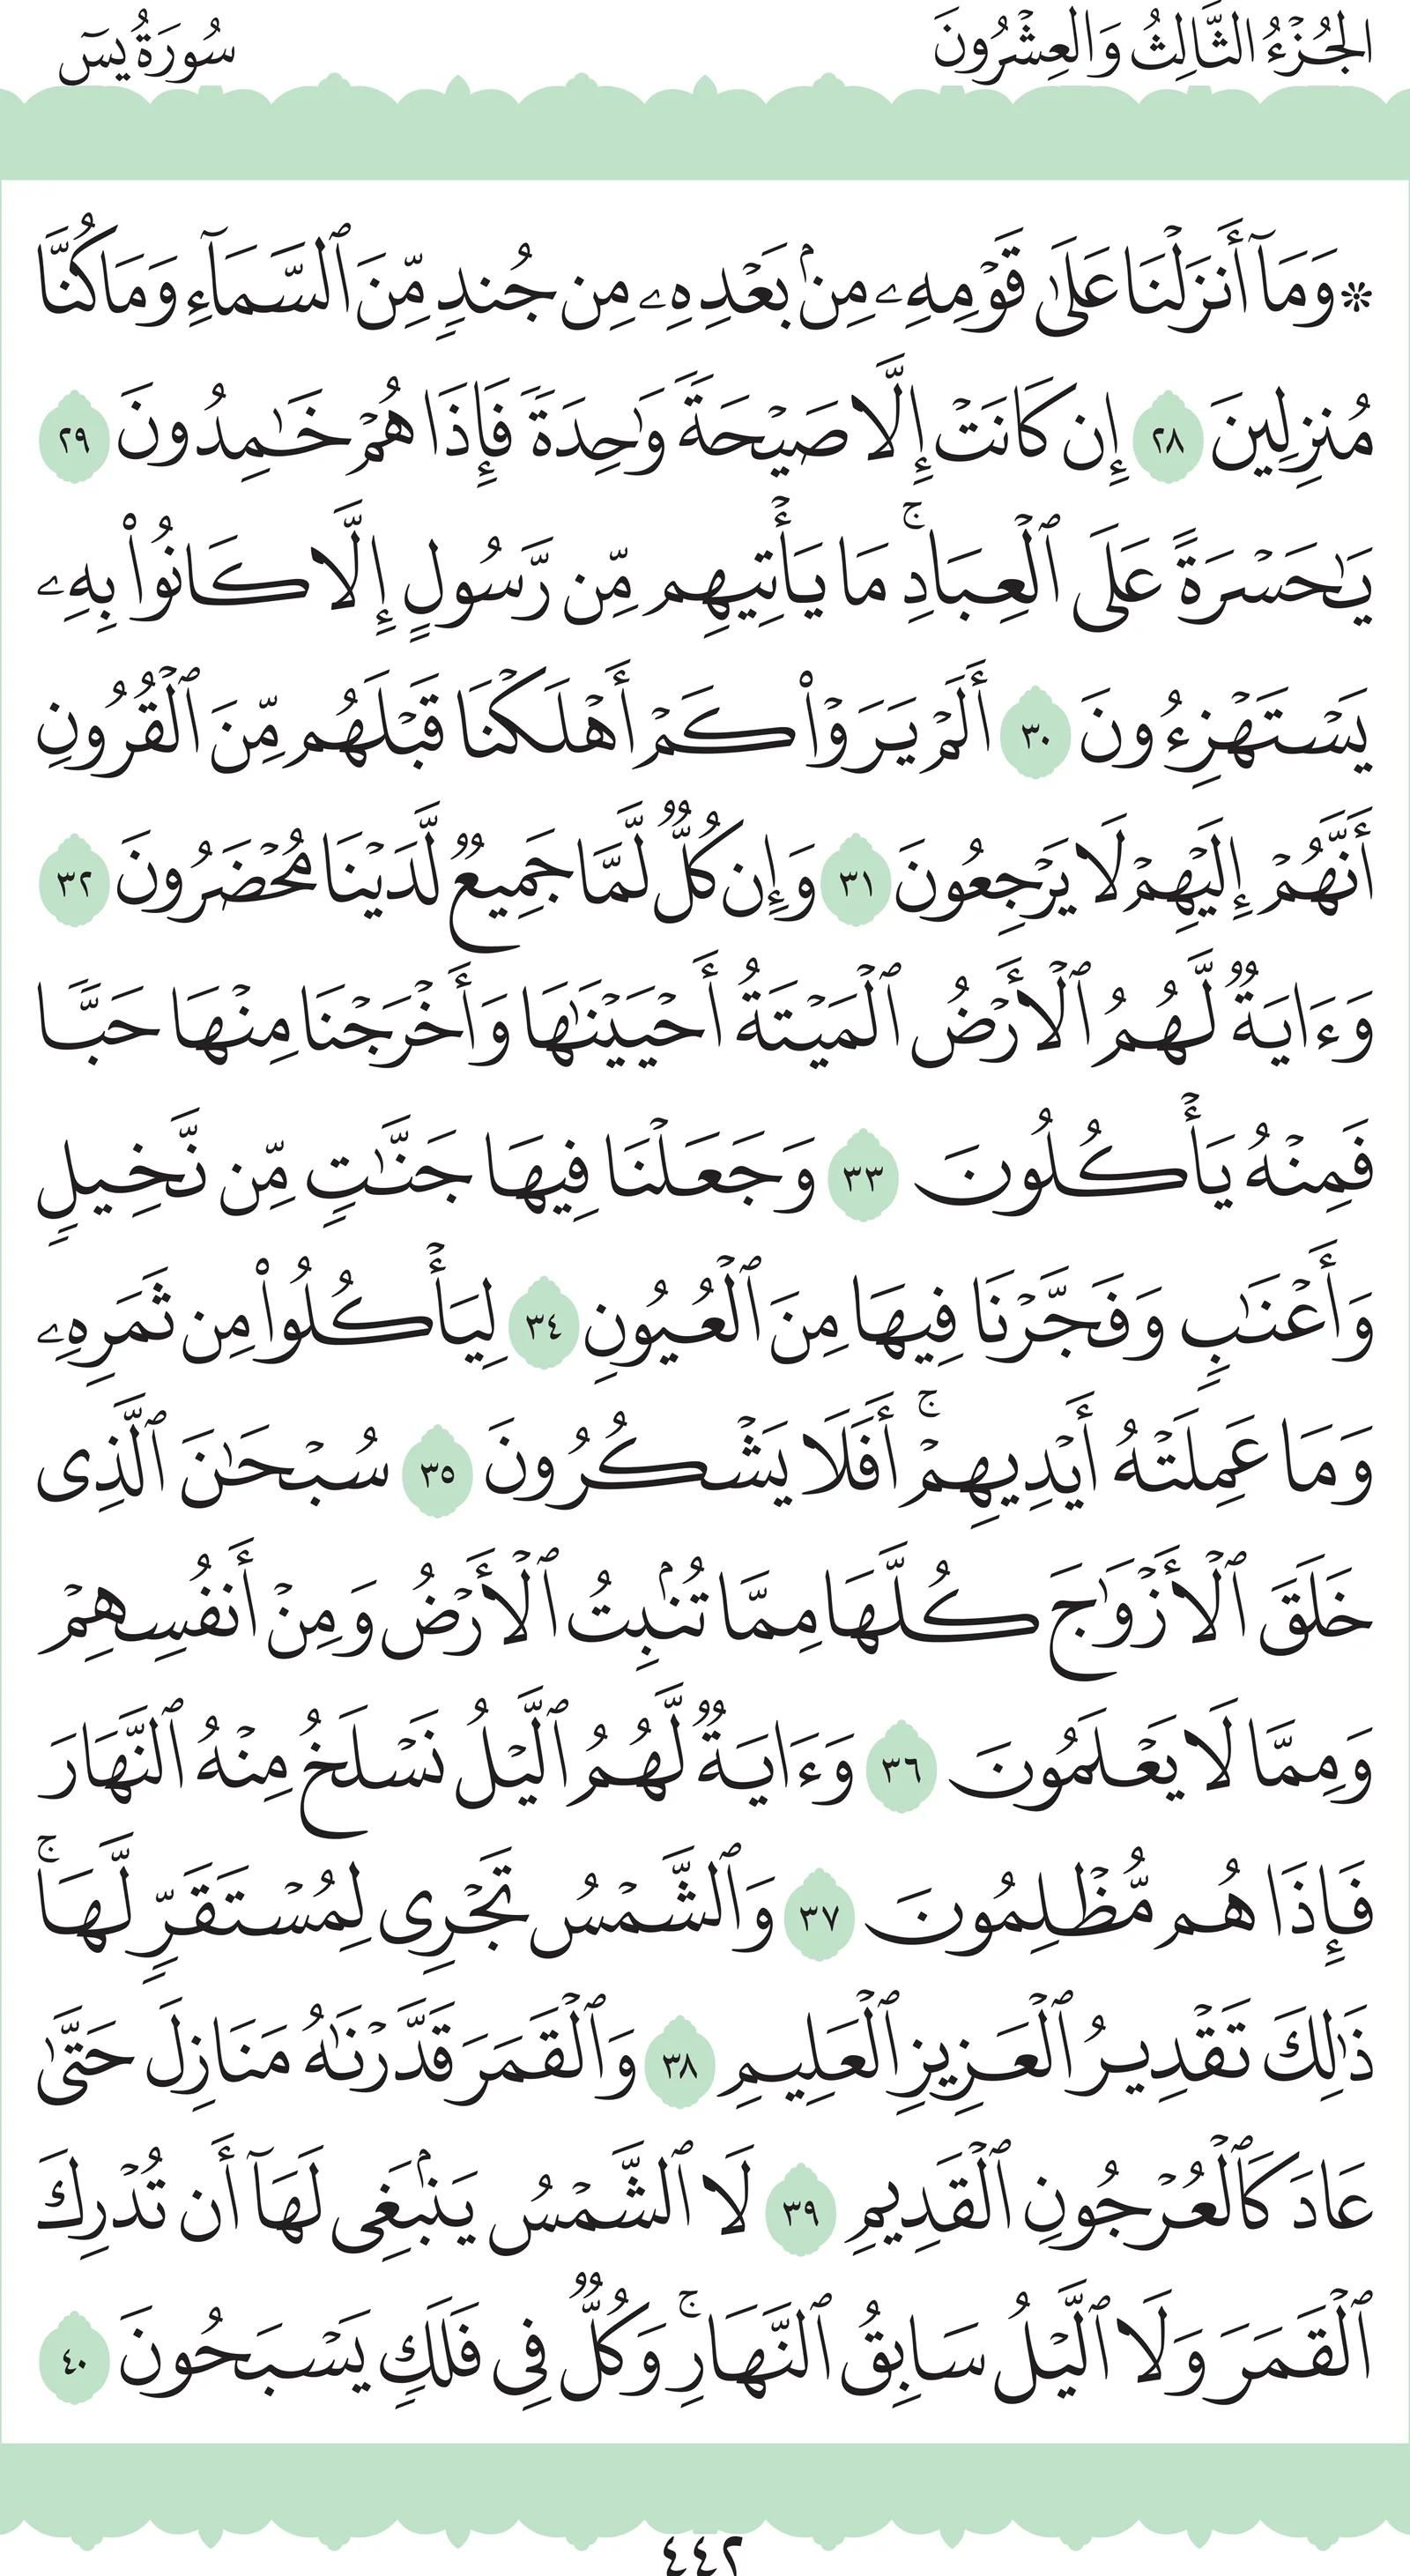 الجُزْءُ الثَّالِثُ وَالعِشْرُونَ سُورَةُ يسٓ
۞ وَمَآ أَنزَلۡنَا عَلَىٰ قَوۡمِهِۦ مِنۢ بَعۡدِهِۦ مِن جُندٖ مِّنَ ٱلسَّمَآءِ وَمَا كُنَّا
مُنزِلِينَ ٢٨ إِن كَانَتۡ إِلَّا صَيۡحَةٗ وَٰحِدَةٗ فَإِذَا هُمۡ خَٰمِدُونَ ٢٩
يَٰحَسۡرَةً عَلَى ٱلۡعِبَادِۚ مَا يَأۡتِيهِم مِّن رَّسُولٍ إِلَّا كَانُواْ بِهِۦ
يَسۡتَهۡزِءُونَ ٣٠ أَلَمۡ يَرَوۡاْ كَمۡ أَهۡلَكۡنَا قَبۡلَهُم مِّنَ ٱلۡقُرُونِ
أَنَّهُمۡ إِلَيۡهِمۡ لَا يَرۡجِعُونَ ٣١ وَإِن كُلّٞ لَّمَّا جَمِيعٞ لَّدَيۡنَا مُحۡضَرُونَ ٣٢
وَءَايَةٞ لَّهُمُ ٱلۡأَرۡضُ ٱلۡمَيۡتَةُ أَحۡيَيۡنَٰهَا وَأَخۡرَجۡنَا مِنۡهَا حَبّٗا
فَمِنۡهُ يَأۡكُلُونَ ٣٣ وَجَعَلۡنَا فِيهَا جَنَّٰتٖ مِّن نَّخِيلٖ
وَأَعۡنَٰبٖ وَفَجَّرۡنَا فِيهَا مِنَ ٱلۡعُيُونِ ٣٤ لِيَأۡكُلُواْ مِن ثَمَرِهِۦ
وَمَا عَمِلَتۡهُ أَيۡدِيهِمۡۚ أَفَلَا يَشۡكُرُونَ ٣٥ سُبۡحَٰنَ ٱلَّذِي
خَلَقَ ٱلۡأَزۡوَٰجَ كُلَّهَا مِمَّا تُنۢبِتُ ٱلۡأَرۡضُ وَمِنۡ أَنفُسِهِمۡ
وَمِمَّا لَا يَعۡلَمُونَ ٣٦ وَءَايَةٞ لَّهُمُ ٱلَّيۡلُ نَسۡلَخُ مِنۡهُ ٱلنَّهَارَ
فَإِذَا هُم مُّظۡلِمُونَ ٣٧ وَٱلشَّمۡسُ تَجۡرِي لِمُسۡتَقَرّٖ لَّهَاۚ
ذَٰلِكَ تَقۡدِيرُ ٱلۡعَزِيزِ ٱلۡعَلِيمِ ٣٨ وَٱلۡقَمَرَ قَدَّرۡنَٰهُ مَنَازِلَ حَتَّىٰ
عَادَ كَٱلۡعُرۡجُونِ ٱلۡقَدِيمِ ٣٩ لَا ٱلشَّمۡسُ يَنۢبَغِي لَهَآ أَن تُدۡرِكَ
ٱلۡقَمَرَ وَلَا ٱلَّيۡلُ سَابِقُ ٱلنَّهَارِۚ وَكُلّٞ فِي فَلَكٖ يَسۡبَحُونَ ٤٠
٤٤٢